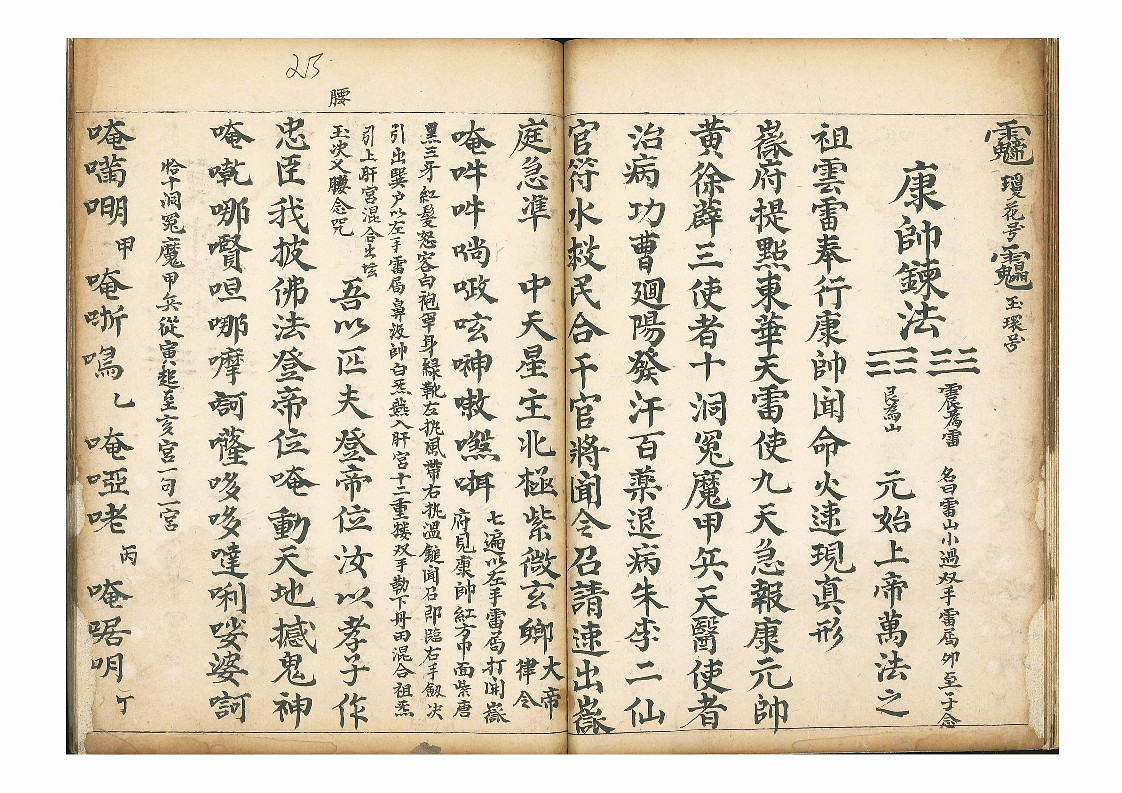 瓊花号 玉環号
康帥鍊法 震為雷 艮為山 名曰雷山小過双手雷局卯至子念
元始上帝萬法之
祖雲雷奉行康帥聞命火速現真形
嶽府提點東華天雷使九天急報康元帥
黃徐薜三使者十洞冤魔甲兵天醫使者
治病功曹迴陽發汗百藥退病朱李二仙
官符水救民合千官將聞令召請速出嶽
庭急準 中天星主北極紫微玄卿大帝律令
唵吽吽 七遍以左手雷局打開嶽
府見康帥紅方巾面紫唐
黑三牙紅髮怒容白袍單身緑靴左挑風帶右挑溫鎚聞召即臨右手劔決
引出巽户以左手雷局鼻汲帥白炁燕入肝宮十二重楼双手勒下丹田混合祖炁
引上肝宮混合出坛
玉次叉腰念咒
吾以匹夫登帝位汝以孝子作
忠臣我披佛法登帝位唵動天地撼鬼神
唵 哪 呾哪摩訶薩哆哆噠唎娑婆訶
恰十洞冤魔甲兵從寅起至亥宮一句一宮
唵 甲 唵 乙 唵啞咾 丙 唵 丁
腰
25